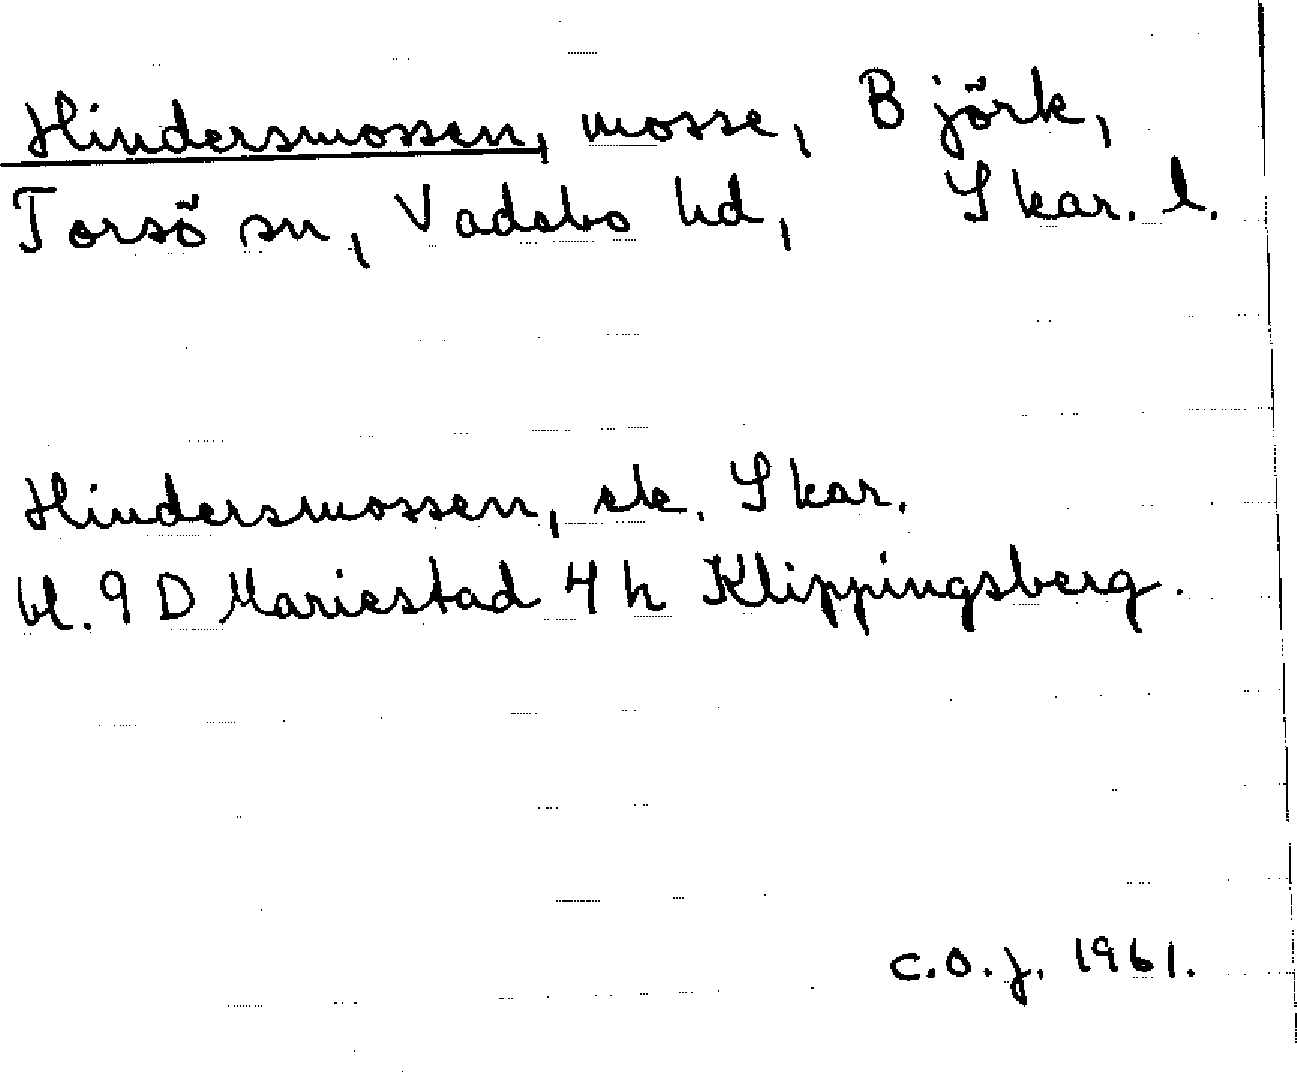 Hindersmossen, mosse, Björk,
Torsö sn, Vadsbo hd, Skar. l.
Hindersmossen, ek. Skar.
bl. 9 D Mariestad 4 h Klippingsberg.
C.O.J. 1961.